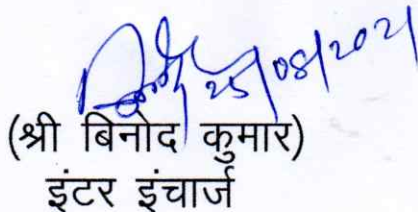 25/08/2021
(श्री बिनोद कुमार)
इंटर इंचार्ज